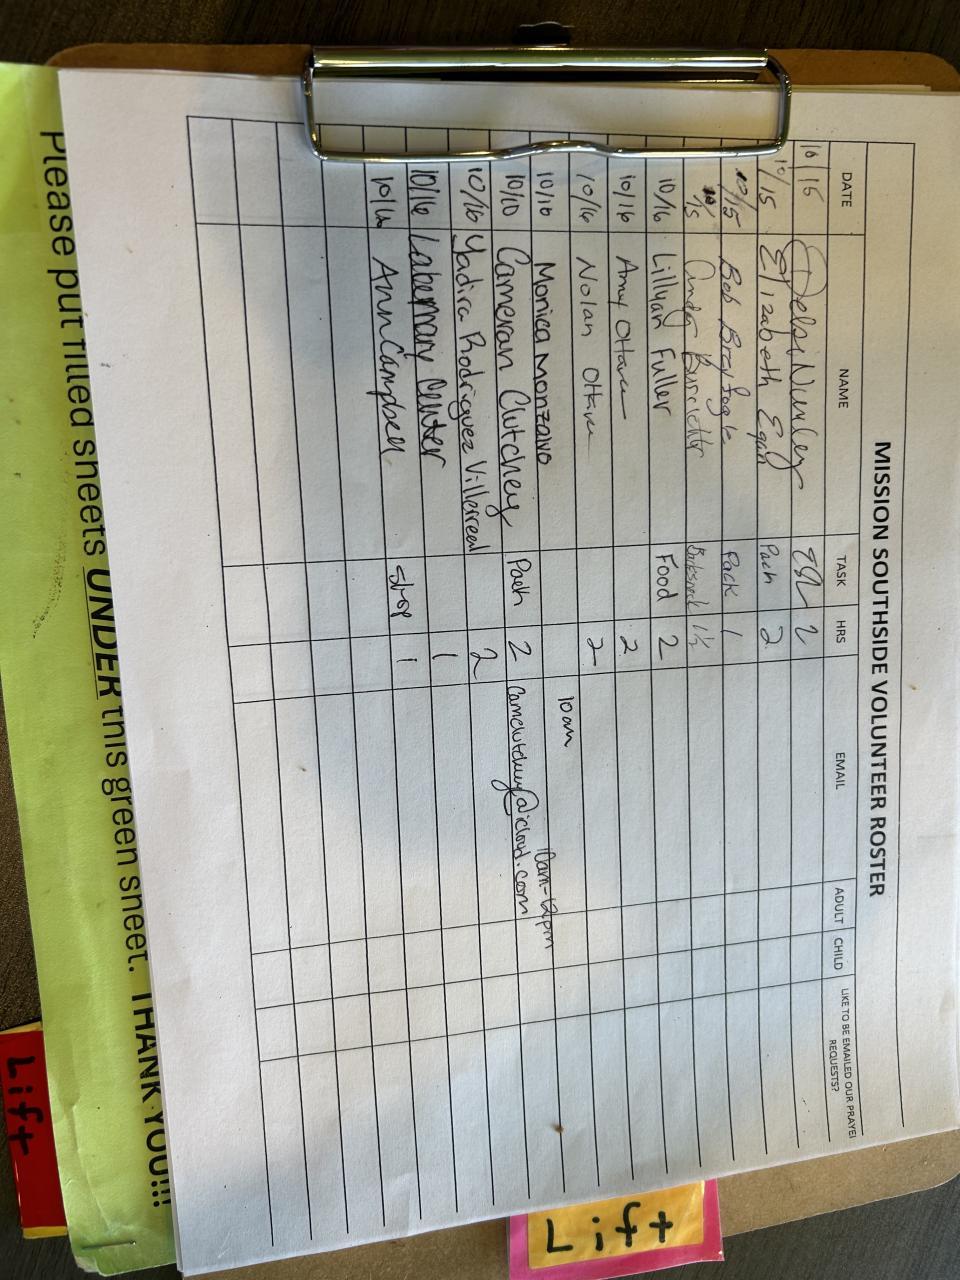 MISSION SOUTHSIDE VOLUNTEER ROSTER
DATE NAME TASK HRS EMAIL ADULT CHILD LIKE TO BE EMAILED OUR PRAYE REQUESTS?
10/15 ESL 2
10/15 Elizabeth Egan Pack 2
10/15 Bob Brayfogle Pack 1
10/15 1½
10/16 Lillyan Fuller Food 2
10/16 Amy 2
10/16 Nolan 2 10am
10/10 Monica Monzalvo 10am-12pm
10/10 Cameran Clutchey Pack 2 Camclutchey@icloud.com
10/16 Yadira Rodriguez Villerreal 2
10/16 Labermary Center 1
10/16 Ann Campbell shop 1
Please put filled sheets UNDER this green sheet. THANK YOU!!!
Lift
Lift